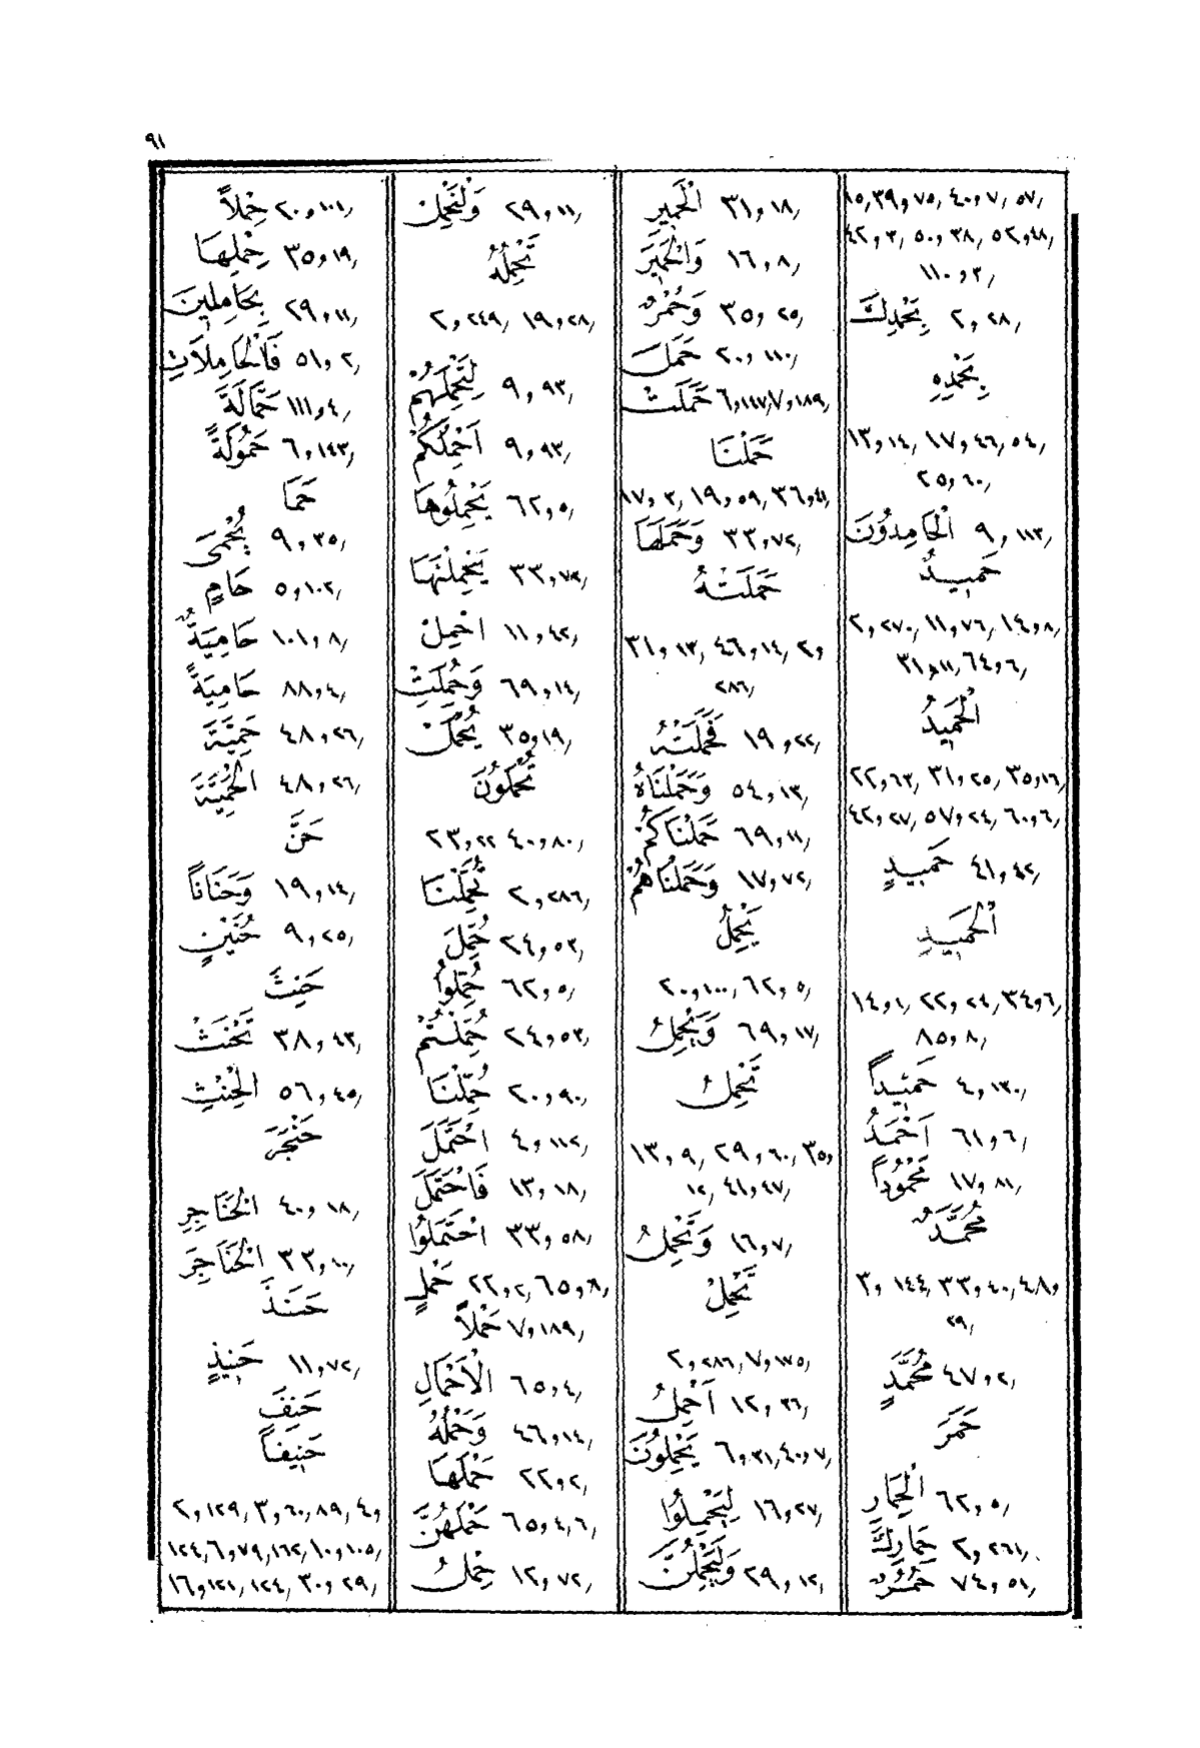 ٩١
٥٧, ٤٠و٧, ٣٩و٧٥, ١٥,
٤٢و٣, ٥٠و٣٨, ٥٢و٤٨,
١١٠و٣,
بِحَمْدِكَ ٢و٢٨,
بِحَمْدِهِ
١٣و١٤, ١٧و٤٦, ٥٤,
٢٥و٦٠,
اَلْحَامِدُونَ ٩و١١٣,
حَمِيدٌ
٢و٢٧٠, ١١و٧٦, ١٤و٨,
٣١و١١, ٦٤و٦,
اَلْحَمِيدُ
٢٢و٦٣, ٣١و٢٥, ٣٥و١٦,
٤٢و٢٧, ٥٧و٢٤, ٦٠و٦,
حَمِيدٍ ٤١و٤٢,
اَلْحَمِيدِ
١٤و١, ٢٢و٢٤, ٣٤و٦,
٨٥و٨,
حَمِيداً ٤و١٣٠,
اَحْمَدُ ٦١و٦,
مَحْمُوداً ١٧و٨١,
مُحَمَّدٌ
٣و١٤٤, ٣٣و٤٠, ٤٨و
٢٩,
مُحَمَّدٍ ٤٧و٢,
حَمَرَ
اَلْحِمَارِ ٦٢و٥,
حِمَارِكَ ٢و٢٦١,
حُمُرٌ ٧٤و٥١,
اَلْحَمِيرِ ٣١و١٨,
وَالْحَمِيرَ ١٦و٨,
وَحُمْرٌ ٣٥و٢٥,
حَمَلَ ٢٠و١١٠,
حَمَلَتْ ٦و١٤٧, ٧و١٨٩,
حَمَلْنَا
١٧و٣, ١٩و٥٩, ٣٦و٤١,
وَحَمَلَهَا ٣٣و٧٢,
حَمَلَتْهُ
٣١و١٣, ٤٦و١٤, ٢و
٢٨٦,
فَحَمَلَتْهُ ١٩و٢٢,
وَحَمَلْنَاهُ ٥٤و١٣,
حَمَلْنَاكُمْ ٦٩و١١,
وَحَمَلْنَاهُمْ ١٧و٧٢,
يَحْمِلُ
٢٠و١٠٠, ٦٢و٥,
وَيَحْمِلُ ٦٩و١٧,
تَحْمِلُ
١٣و٩, ٢٩و٦٠, ٣٥و
١٢, ٤١و٤٧,
وَتَحْمِلُ ١٦و٧,
تَحْمِلْ
٢و٢٨٦, ٧و١٧٥,
اَحْمِلُ ١٢و٣٦,
يَحْمِلُونَ ٦و٣١, ٤٠و٧,
لِيَحْمِلُوا ١٦و٢٧,
وَلَيَحْمِلُنَّ ٢٩و١٢,
وَلْنَحْمِلْ ٢٩و١١,
تَحْمِلُهُ
٢و٢٤٩, ١٩و٢٨,
لِتَحْمِلَهُمْ ٩و٩٣,
اَحْمِلُكُمْ ٩و٩٣,
يَحْمِلُوهَا ٦٢و٥,
يَحْمِلْنَهَا ٣٣و٧٢,
احْمِلْ ١١و٤٢,
وَحُمِلَتِ ٦٩و١٤,
يُحْمَلْ ٣٥و١٩,
تُحْمَلُونَ
٢٣و٢٢ ٤٠و٨٠,
تُحَمِّلْنَا ٢و٢٨٦,
حُمِّلَ ٢٤و٥٣,
حُمِّلُوا ٦٢و٥,
حُمِّلْتُمْ ٢٤و٥٣,
حُمِّلْنَا ٢٠و٩٠,
احْتَمَلَ ٤و١١٢,
فَاحْتَمَلَ ١٣و١٨,
احْتَمَلُوا ٣٣و٥٨,
حَمْلٍ ٢٢و٢, ٦٥و٦,
حَمْلاً ٧و١٨٩,
الْاَحْمَالِ ٦٥و٤,
وَحَمْلُهُ ٤٦و١٤,
حَمْلَهَا ٢٢و٢,
حَمْلَهُنَّ ٦٥و٤, ٦,
حِمْلُ ١٢و٧٢,
حِمْلاً ٢٠و١٠١,
حِمْلِهَا ٣٥و١٩,
بِحَامِلِينَ ٢٩و١١,
فَالْحَامِلَاتِ ٥١و٢,
حَمَّالَةَ ١١١و٤,
حَمُولَةً ٦و١٤٣,
حَمَا
يُحْمَى ٩و٣٥,
حَامٍ ٥و١٠٢,
حَامِيَةٌ ١٠١و٨,
حَامِيَةً ٨٨و٤,
حَمِيَّةَ ٤٨و٢٦,
الْحَمِيَّةَ ٤٨و٢٦,
حَنَّ
وَحَنَاناً ١٩و١٤,
حُنَيْنٍ ٩و٢٥,
حَنِثَ
تَحْنَثْ ٣٨و٤٣,
الْحِنْثِ ٥٦و٤٥,
حَنْجَرَ
الْحَنَاجِرِ ٤٠و١٨,
الْحَنَاجِرَ ٣٣و١٠,
حَنَذَ
حَنِيذٍ ١١و٧٢,
حَنَفَ
حَنِيفاً
٢و١٢٩, ٣و٦٠, ٨٩, ٤و
١٢٤, ٦و٧٩, ١٦٢, ١٠و١٠٥,
١٦و١٢١, ١٢٤, ٣٠و٢٩,